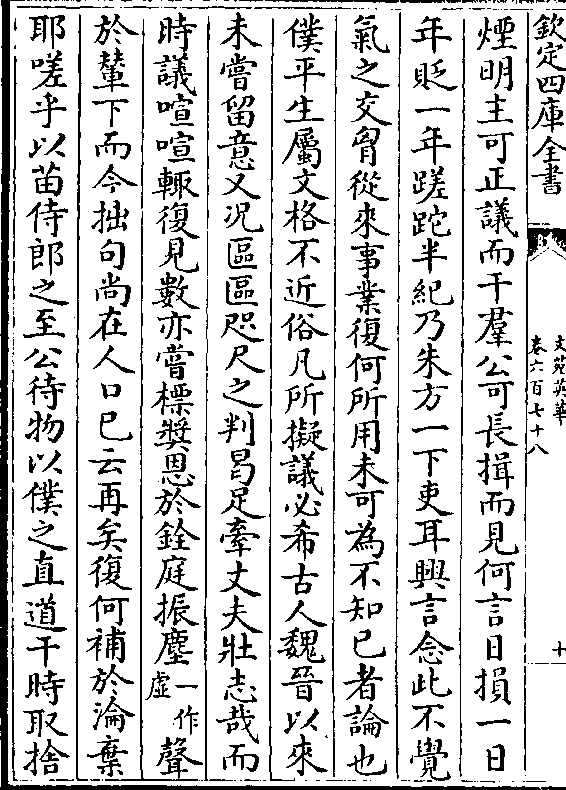 欽定四庫全書
文苑英華
卷六百七十八
十
煙明主可正議而干羣公可長揖而見何言日損一日
年貶一年蹉跎半紀乃朱方一下吏耳興言念此不覺
氣之交胷從來事業復何所用未可為不知已者論也
僕平生屬文格不近俗凡所擬議必希古人魏晉以來
未嘗留意又況區區咫尺之判曷足牽丈夫壯志哉而
時議喧喧輙復見數亦嘗標奬恩於銓庭振塵一作虛聲
於輦下而今拙句尚在人口已云再矣復何補於淪棄
耶嗟乎以苗侍郎之至公待物以僕之直道干時取捨